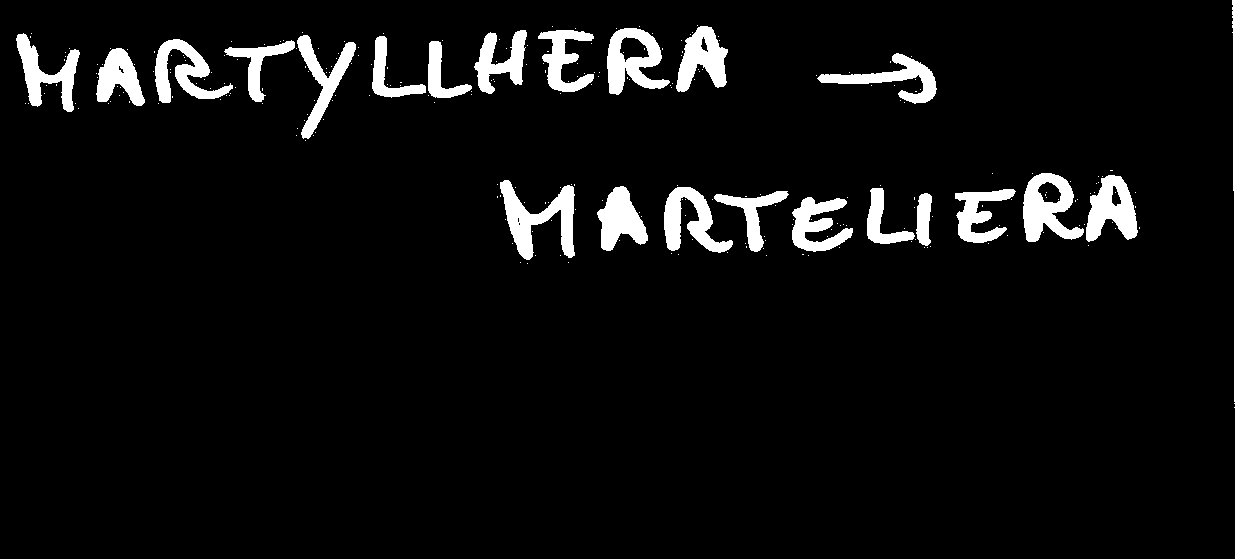 MARTYLLHERA →
MARTELIERA